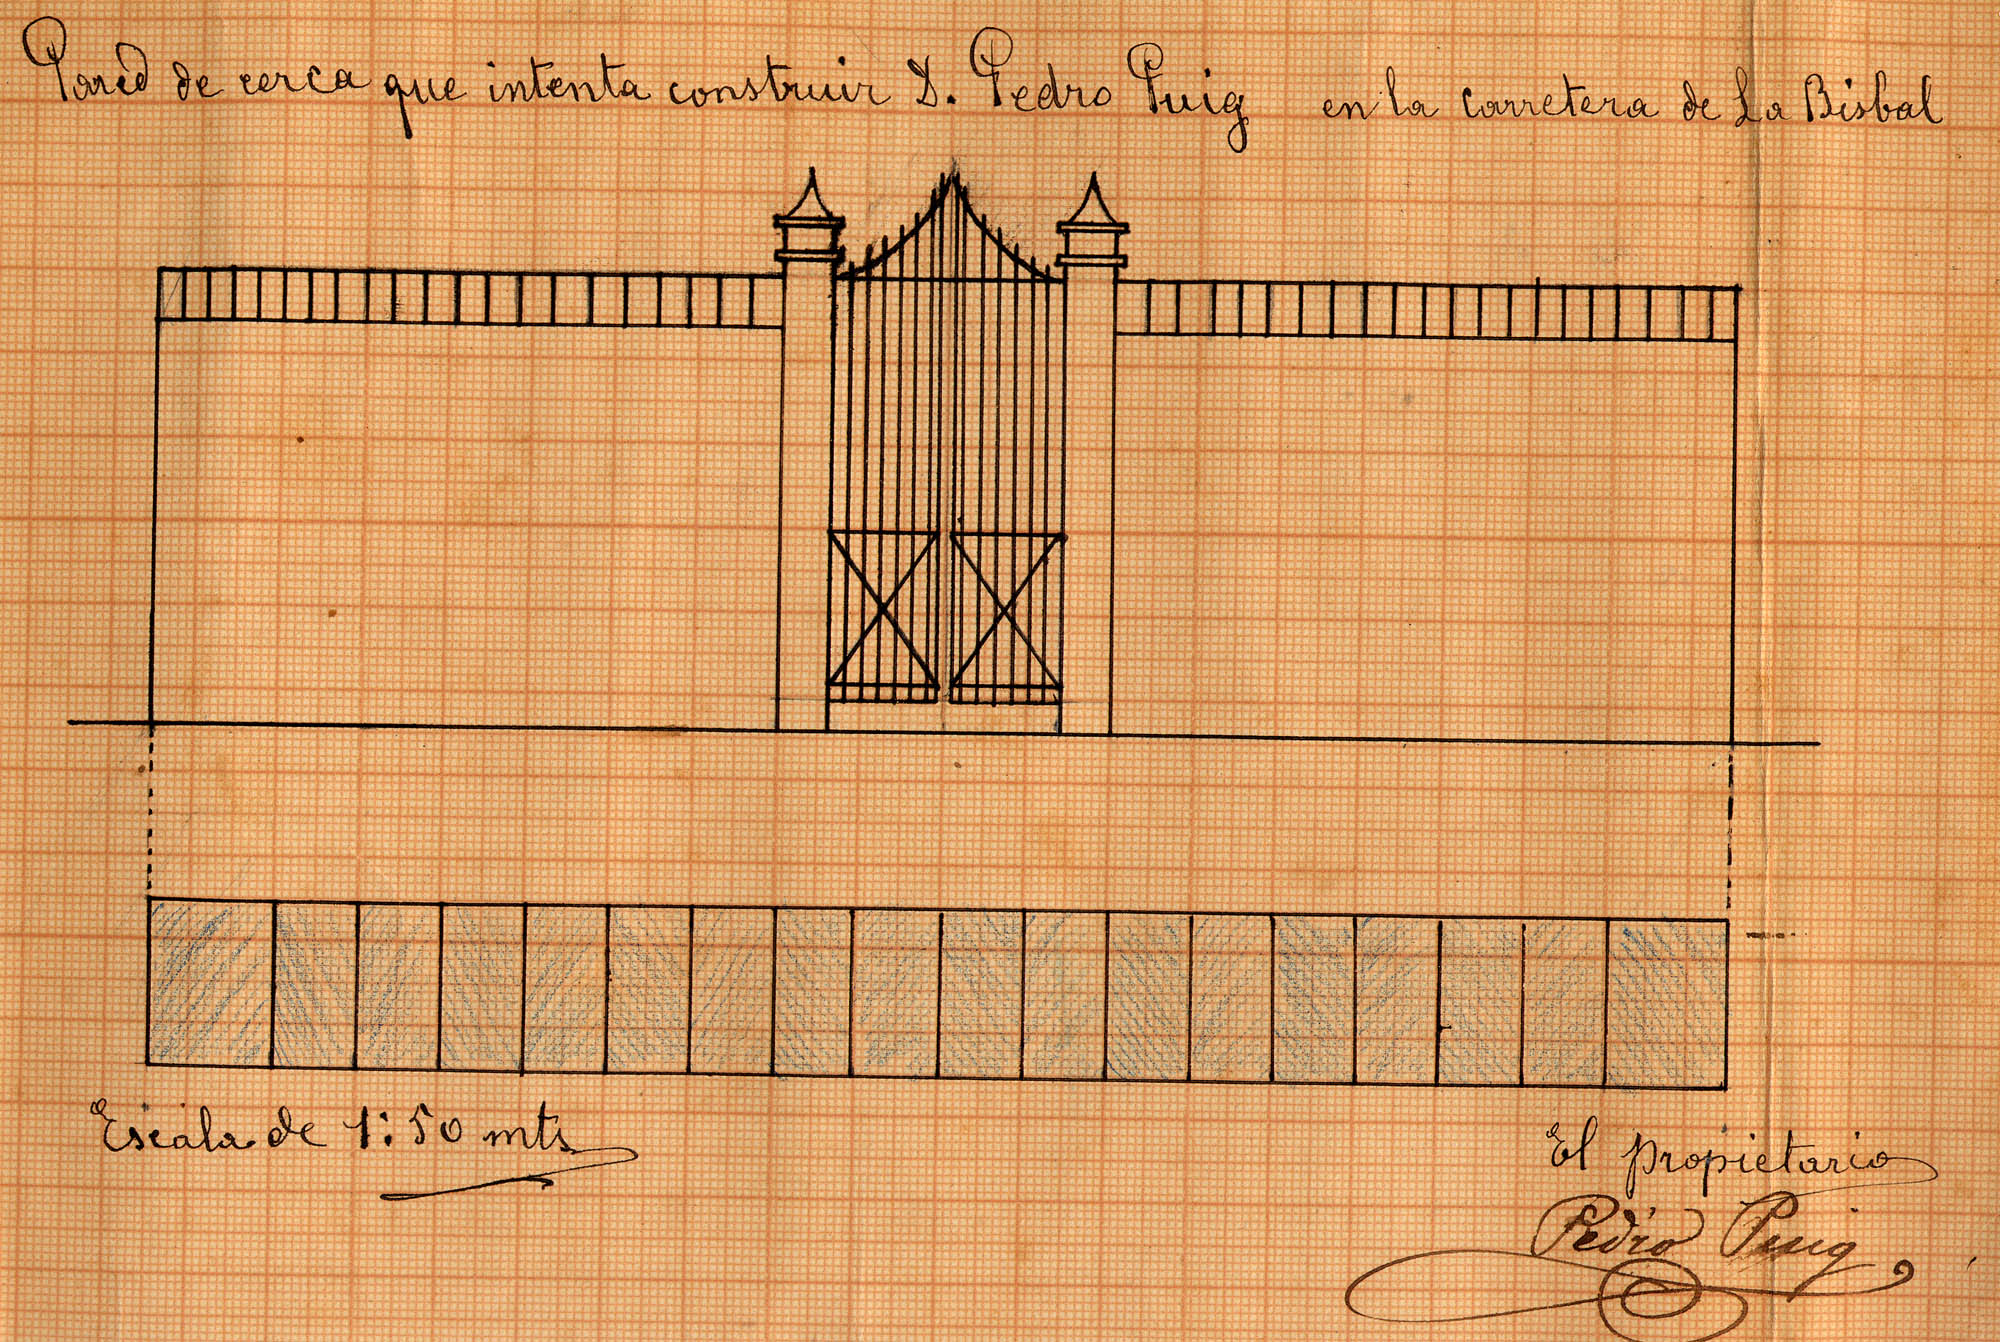 Pared de cerca que intenta construir D. Pedro Puig en la carretera de La Bisbal
Escala de 1:50 mts
El propietario
Pedro Puig